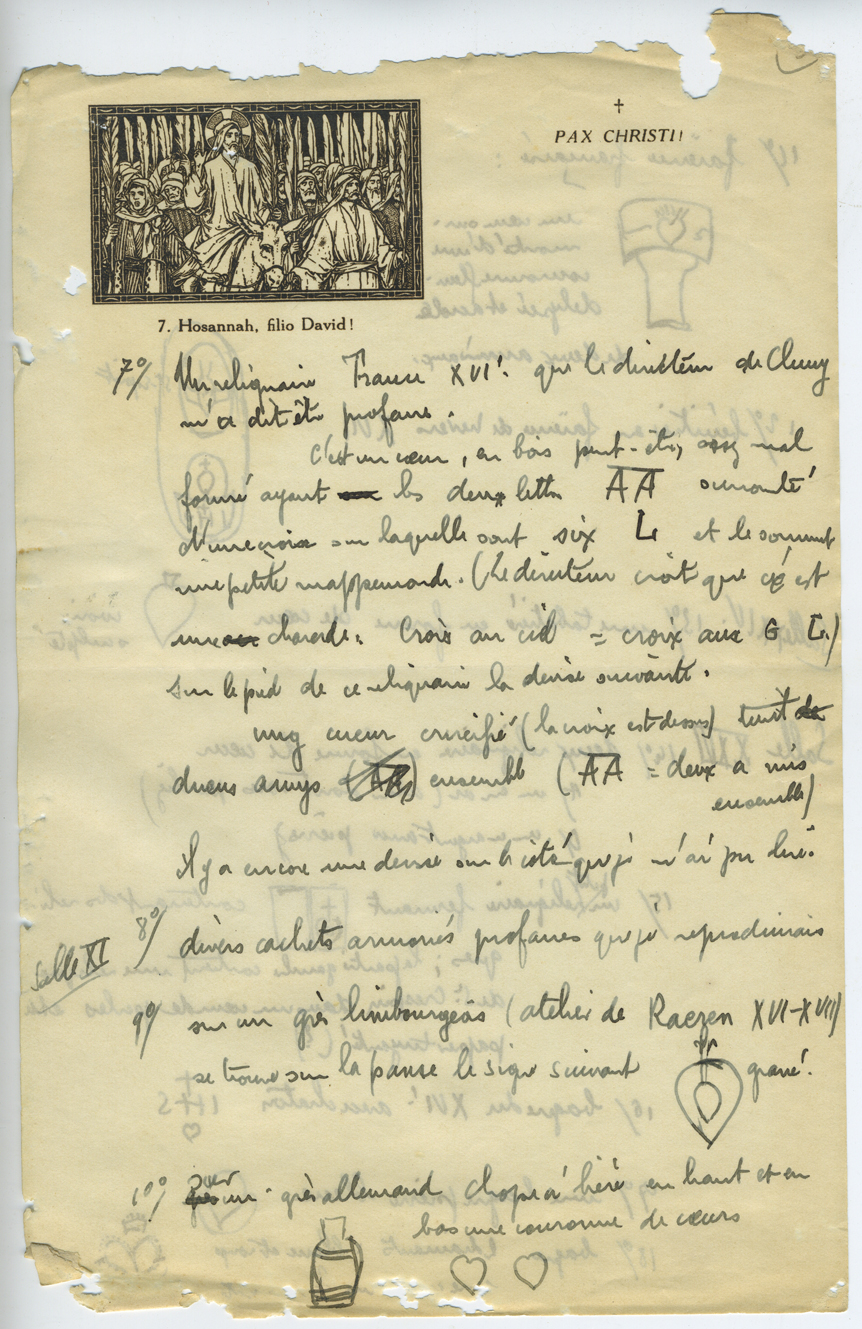 †
PAX CHRISTI!
7. Hosannah, filio David!
7°/ Un reliquaire France XVIe. que le directeur de Cluny
m'a dit être profane.
c'est un cœur, en bois peut-être, assez mal
formé ayant les deux lettres AA surmonté
d'une croix sur laquelle sont six L et le sommet
une petite mappemonde. (Le directeur croit que c'est
une charade. Croix au ciel = croix aux 6 L)
Sur le pied de ce reliquaire la devise suivante.
ung cueur crucifié (la croix est dessus) tient de
deux amys (AA) ensemble (AA = deux a mis
ensemble)
il y a encore une devise sur le côté que je n'ai pu lire.
8°/ divers cachets armoriés profanes que je reproduirais
Salle XI
9°/ sur un grès limbourgeois (atelier de Raeren XVI-XVII)
se trouve sur la panse le signe suivant gravé.
10°/ sur un grès allemand chope à bière en haut et en
bas une couronne de cœurs